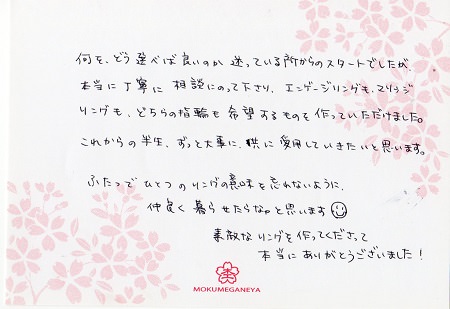 何を、どう選べば良いのか迷っている所からのスタートでしたが、
本当に丁寧に相談にのって下さり、エンゲージリングも、マリッジ
リングも、どちらの指輪も希望するものを作っていただけました。
これからの半生、ずっと大事に、供に愛用していきたいと思います。
ふたつでひとつのリングの意味を忘れないように、
仲良く暮らせたらなぁと思います
素敵なリングを作ってくださって
本当にありがとうございました!
MOKUMEGANEYA